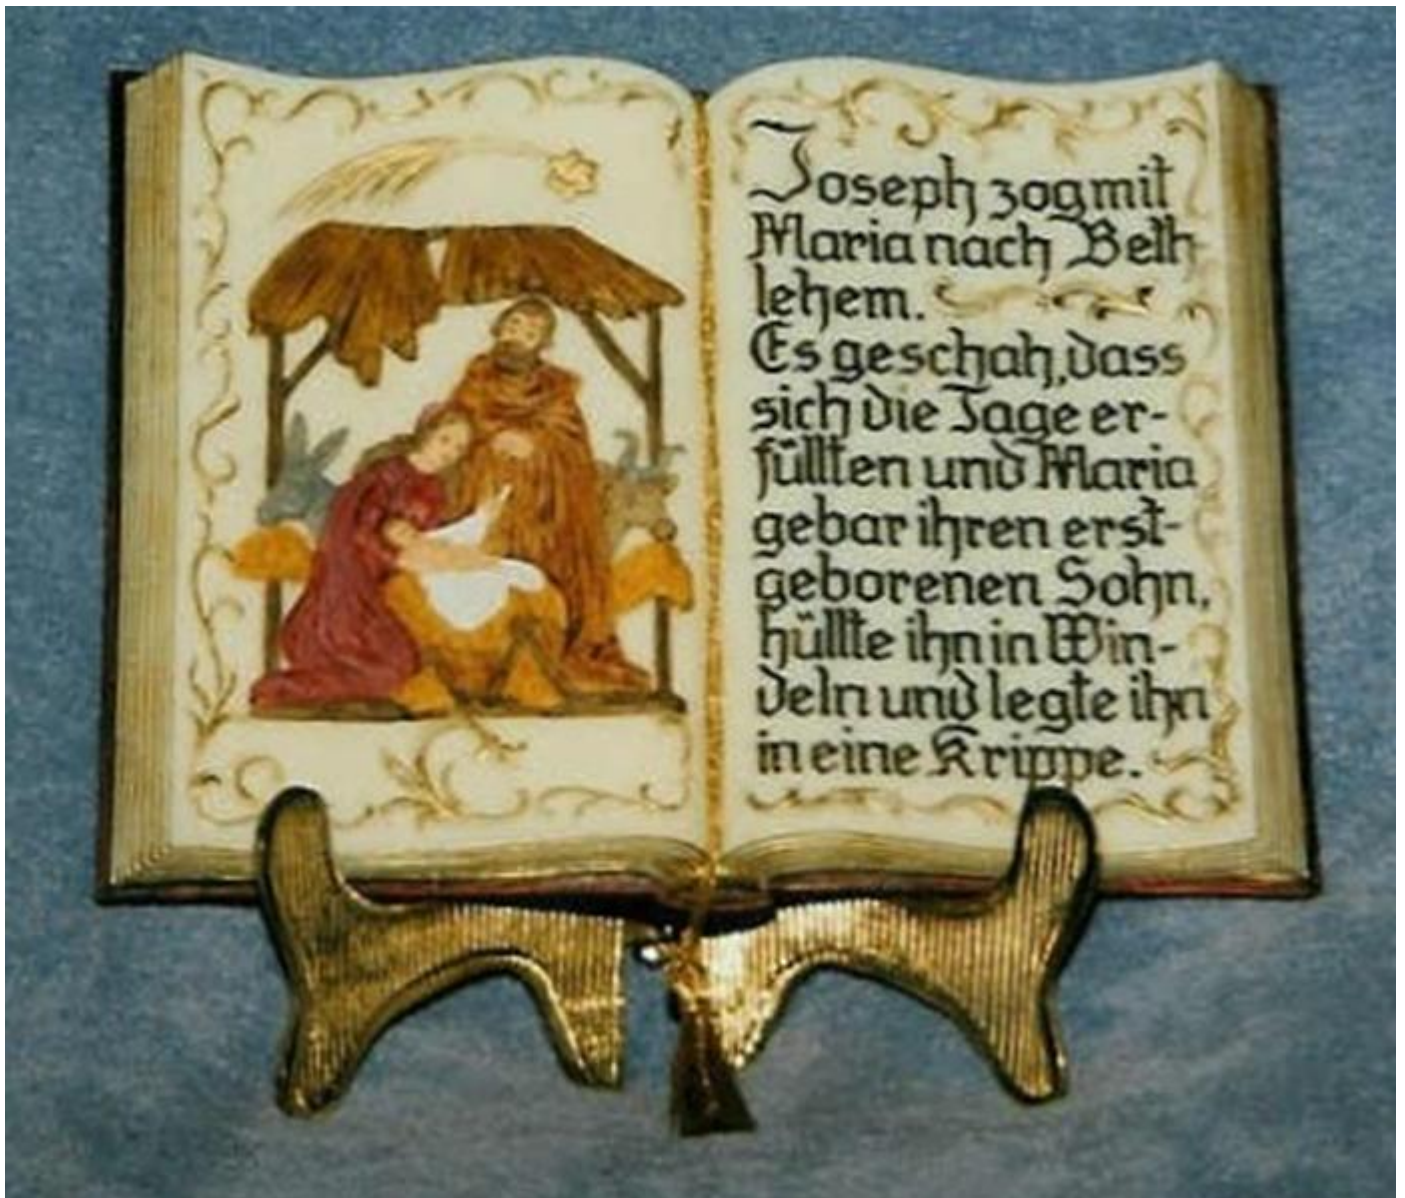 Joseph zog mit
Maria nach Beth
lehem.
Es geschah, dass
sich die Tage er-
füllten und Maria
gebar ihren erst-
geborenen Sohn,
hüllte ihn in Win-
deln und legte ihn
in eine Krippe.